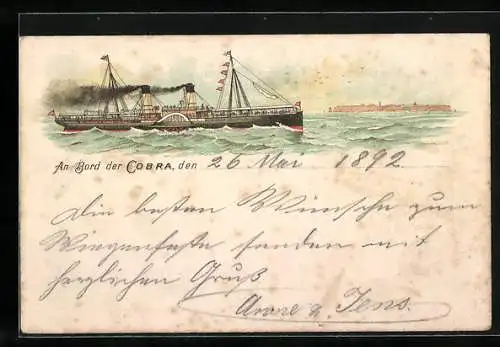 An Bord der COBRA, den 26 Mai 1892
Die besten Wünsche zum
Wiegenfeste senden mit
herzlichen Gruß
Jens.